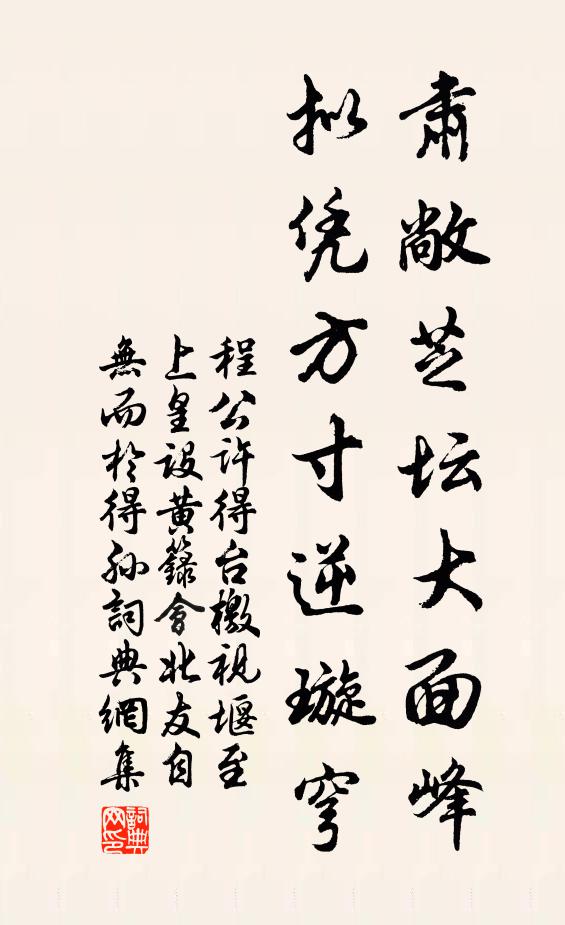 肃敞芝坛大面峰
拟凭方寸逆璇穹
程公许得台檄视堰至
上皇设黄籙會北友自
無而於得孙詞典網集
詞典网印